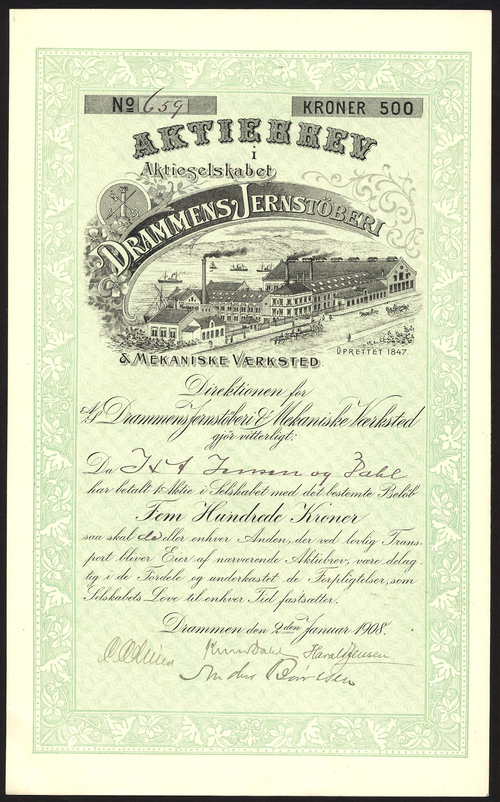 No 659
KRONER 500
AKTIEBREV
i
Aktieselskabet
DRAMMENS JERNSTÖBERI
& MEKANISKE VÆRKSTED
OPRETTET 1847.
Direktionen for
A/S Drammens Jernstöberi & Mekaniske Værksted
gjör vitterligt:
Da J & A Jensen og Dahl
har betalt 1 Aktie i Selskabet med det bestemte Belöb
Fem Hundrede Kroner
saa skal de eller enhver Anden, der ved lovlig Trans-
port bliver Eier af nærværende Aktiebrev, være delag-
tig i de Fordele og underkastet de Forpligtelser, som
Selskabets Love til enhver Tid fastsætter.
Drammen den 2den Januar 1908.
Harald Jensen